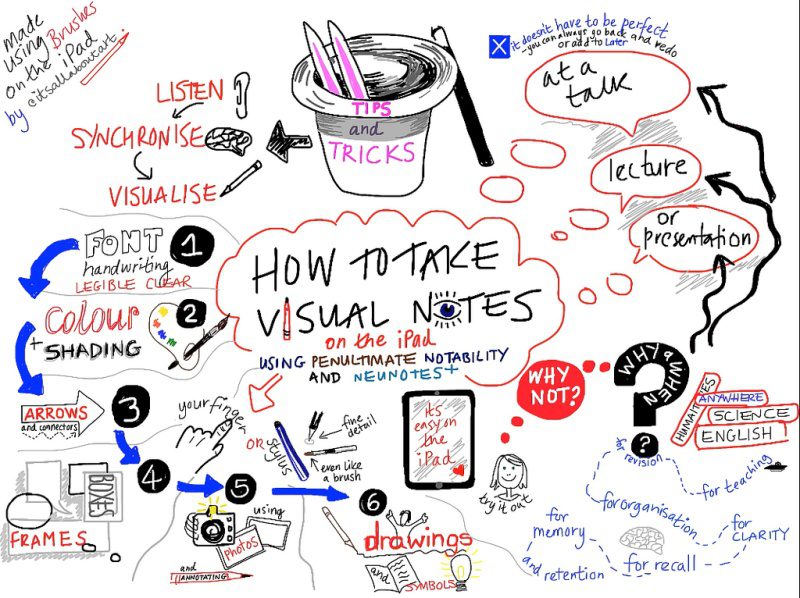 made
using Brushes
on the iPad
by @itsallaboutart
LISTEN
SYNCHRONISE
VISUALISE
TIPS
and
TRICKS
it doesn't have to be perfect
- you can always go back and redo
or add to later
at a
talk
lecture
or
presentation
HOW TO TAKE
VISUAL NOTES
on the iPad
USING PENULTIMATE NOTABILITY
AND NEUNOTES+
FONT 1
handwriting
LEGIBLE CLEAR
Colour 2
+ SHADING
ARROWS
and connectors
3
4
BOXES
FRAMES
5
using
photos
and
ANNOTATING
your finger
OR
stylus
fine
detail
even like
a brush
6
drawings
and
SYMBOLS
it's
easy on
the
iPad
try it out
WHY
NOT?
WHY & WHEN
?
HUMANITIES
ANYWHERE
SCIENCE
ENGLISH
for revision
for teaching
for organisation
for
memory
and
retention
for recall
for
CLARITY